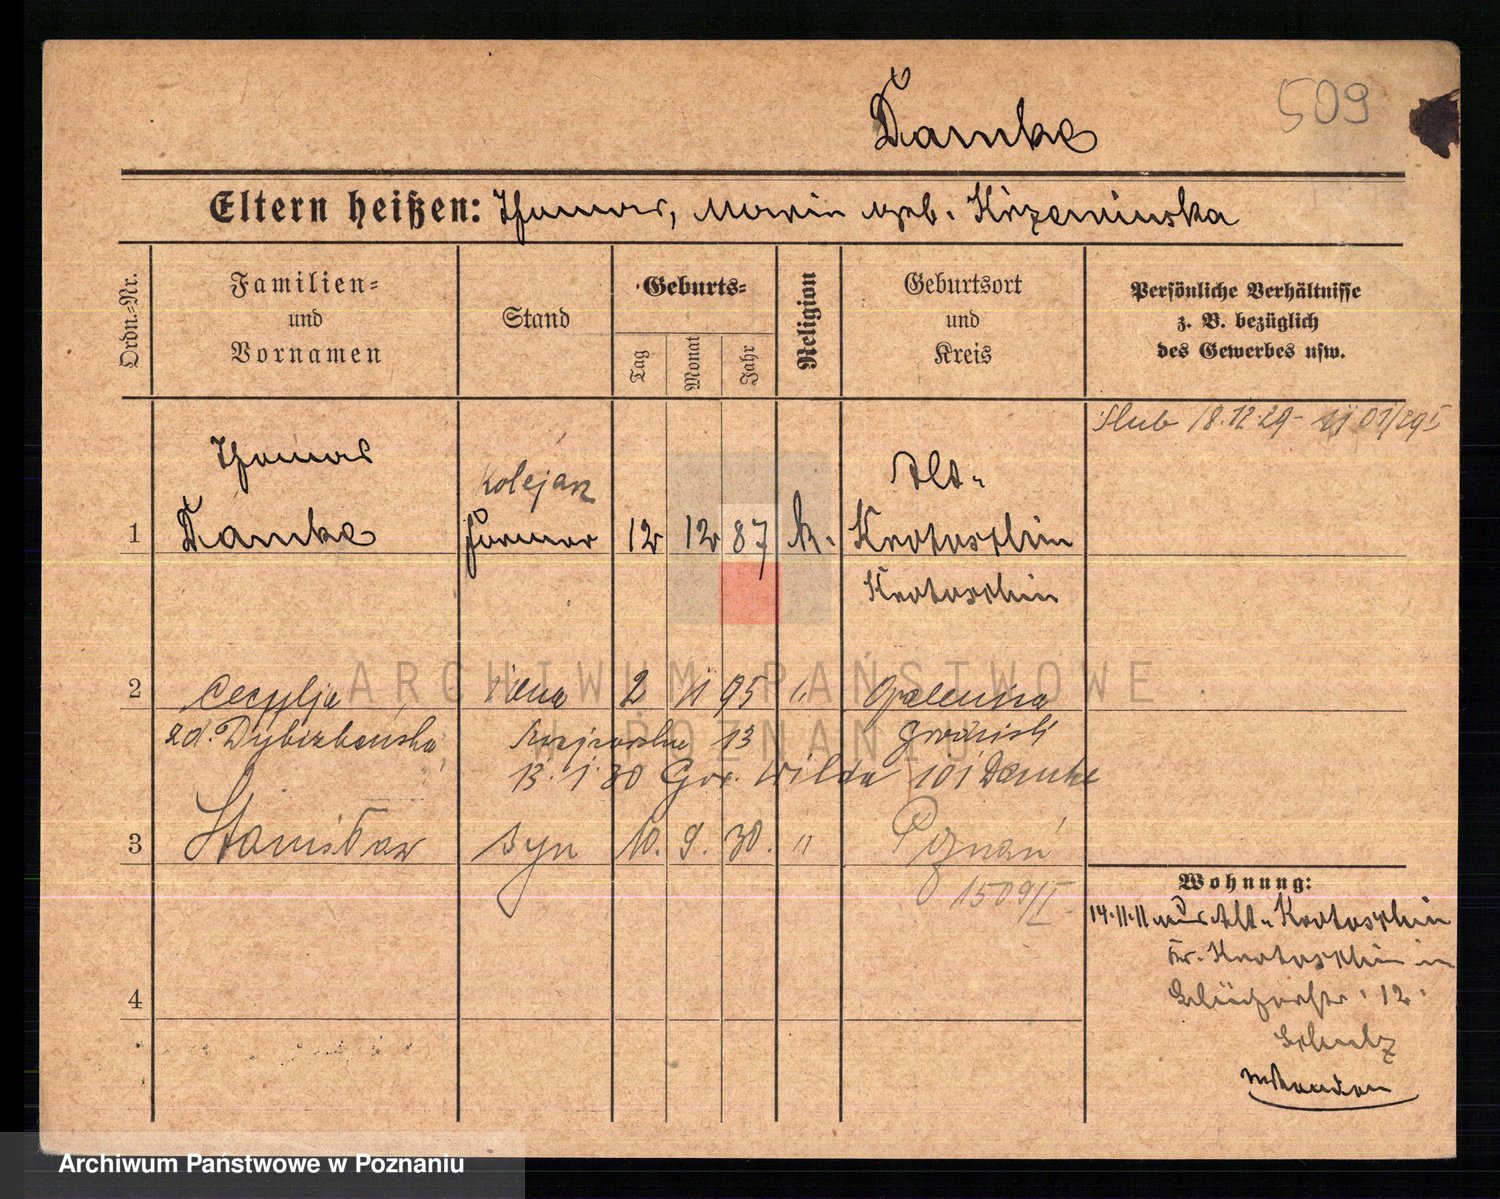 509
Damke
Eltern heißen: Thomas, Marie geb. Krzeminska
Ordn.-Nr.
Familien-
und
Vornamen
Stand
Geburts-
Tag
Monat
Jahr
Religion
Geburtsort
und
Kreis
Persönliche Verhältnisse
z. B. bezüglich
des Gewerbes usw.
Slub 18.12.29
Thomas
kolejarz
Alt-
1 Damke Former 12 12 87 k. Krotoschin
Krotoschin
2 Cecylja żona 2 11 95 " Opalenica
zd. Dybizbańska 13 Grodzisk
13.1.30 Gór. Wilda 101 Damke
3 Stanisław syn 10. 9. 30. " Poznań
1509/I
Wohnung:
14.11.11 aus Alt-Krotoschin
Kr. Krotoschin in
Blücherstr. 12.
Schulz
4
ARCHIWUM PAŃSTWOWE
W POZNANIU
Archiwum Państwowe w Poznaniu